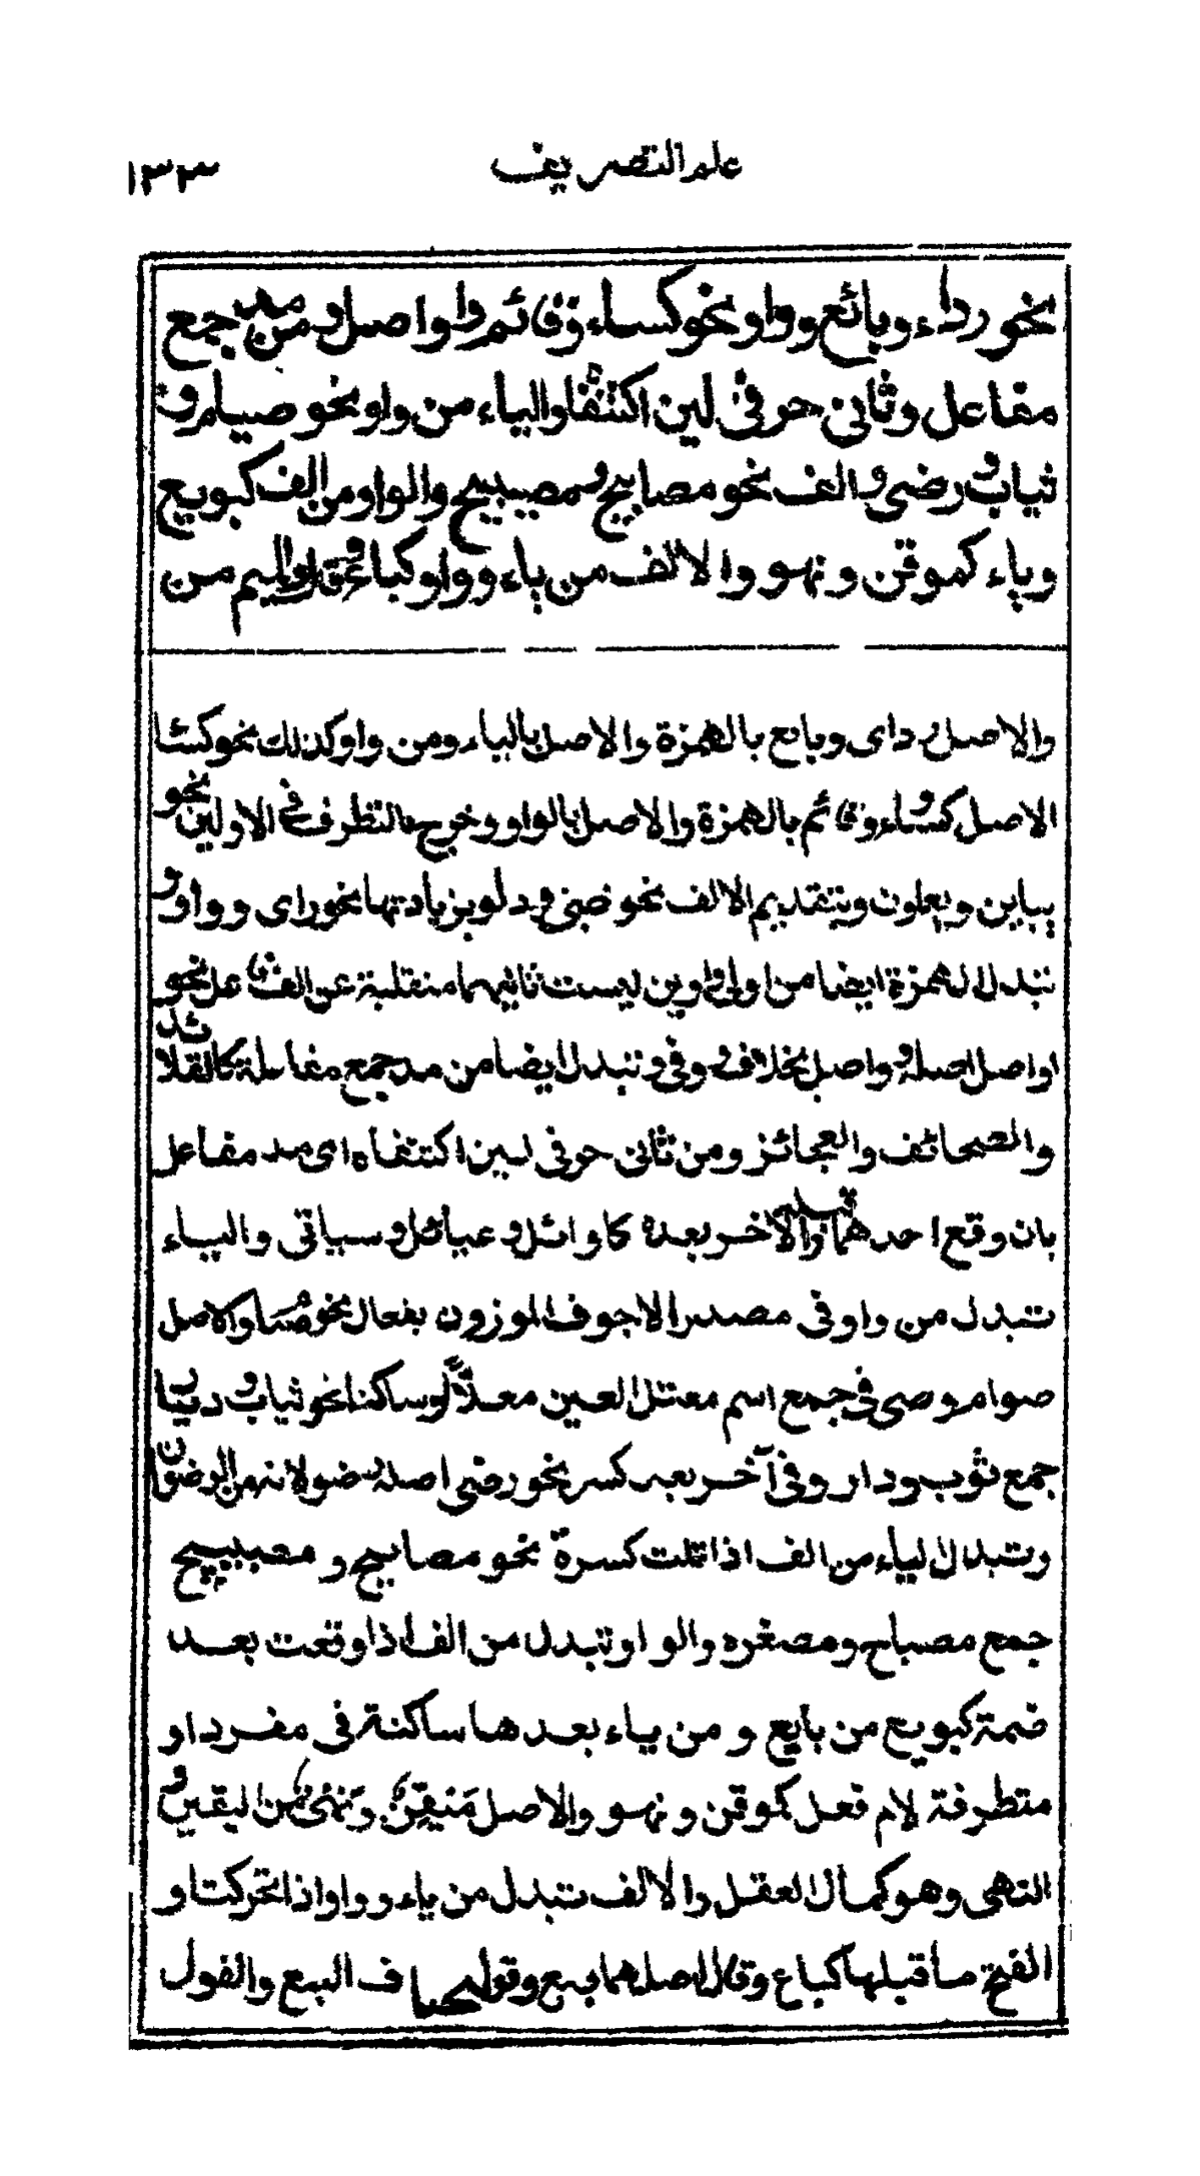 علم التصريف ١٣٣
نحو رداء وبائع وواو نحو كساء وقائم واواصل ومن مد جمع
مفاعل وثانى حرفى لين اكتنفا والياء من واو نحو صيام و
ثياب ورضى والف نحو مصابيح ومصيبيح والواو من الف كبويع
وياء كموقن ونهو والالف من ياء وواو كباع وقال والميم من
والاصل رداى وبايع بالهمزة والاصل بالياء ومن واو كذلك نحو كساء
الاصل كساو وقائم بالهمزة والاصل بالواو وخرج بالتطرف فى الاولين نحو
يباين ويعاون وبتقديم الالف نحو ضبى ودلو بزيادتها نحو راى وواو و
تبدل الهمزة ايضا من اولى واوين ليست ثانيهما منقلبة عن الف فاعل نحو
اواصل اصله وواصل بخلاف ووفى وتبدل ايضا من مد جمع مفاعل كالقلائد
والصحائف والعجائز ومن ثانى حرفى لين اكتنفاه اى مد مفاعل
بان وقع احدهما قبله والاخر بعده كاوائل وعيائل وسياتى والياء
تبدل من واو فى مصدر الاجوف الموزون بفعال نحو صيام والاصل
صوام وصى فى جمع اسم معتل العين معلا او ساكنا نحو ثياب وديار
جمع ثوب ودار وفى آخر بعد كسر نحو رضى اصله رضو لانه من الرضوان
وتبدل الياء من الف اذا تلت كسرة نحو مصابيح ومصيبيح
جمع مصباح ومصغره والواو تبدل من الف اذا وقعت بعد
ضمة كبويع من بايع ومن ياء بعدها ساكنة فى مفرد او
متطرفة لام فعل كموقن ونهو والاصل ميقن ونهى من اليقين و
النهى وهو كمال العقل والالف تبدل من ياء وواو اذا تحركتا و
الفتح ما قبلهما كباع وقال اصلهما بيع وقول بخلاف البيع والقول